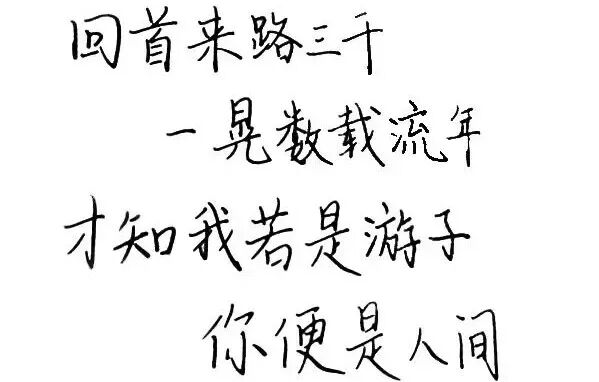 回首来路三千
一晃数载流年
才知我若是游子
你便是人间